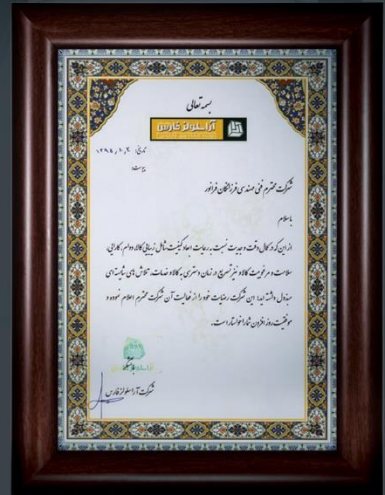 بسمه تعالی
آراسلولز فارس
تاریخ: ۱۳۹۵/۱۰/۳۰
پیوست:
شرکت محترم فنی مهندسی فرزانگان فرانور
با سلام
از این که در کمال دقت و جدیت نسبت به رعایت ابعاد کیفیت شامل زیبایی کالا، دوام، کارایی،
سلامت و مرغوبیت کالا و نیز تسریع در زمان دسترسی به کالا و خدمات، تلاش های شایسته ای
مبذول داشته اید، این شرکت رضایت خود را از فعالیت آن شرکت محترم اعلام نموده و
موفقیت روز افزون شما را خواستار است.
با تشکر
شرکت آراسلولز فارس